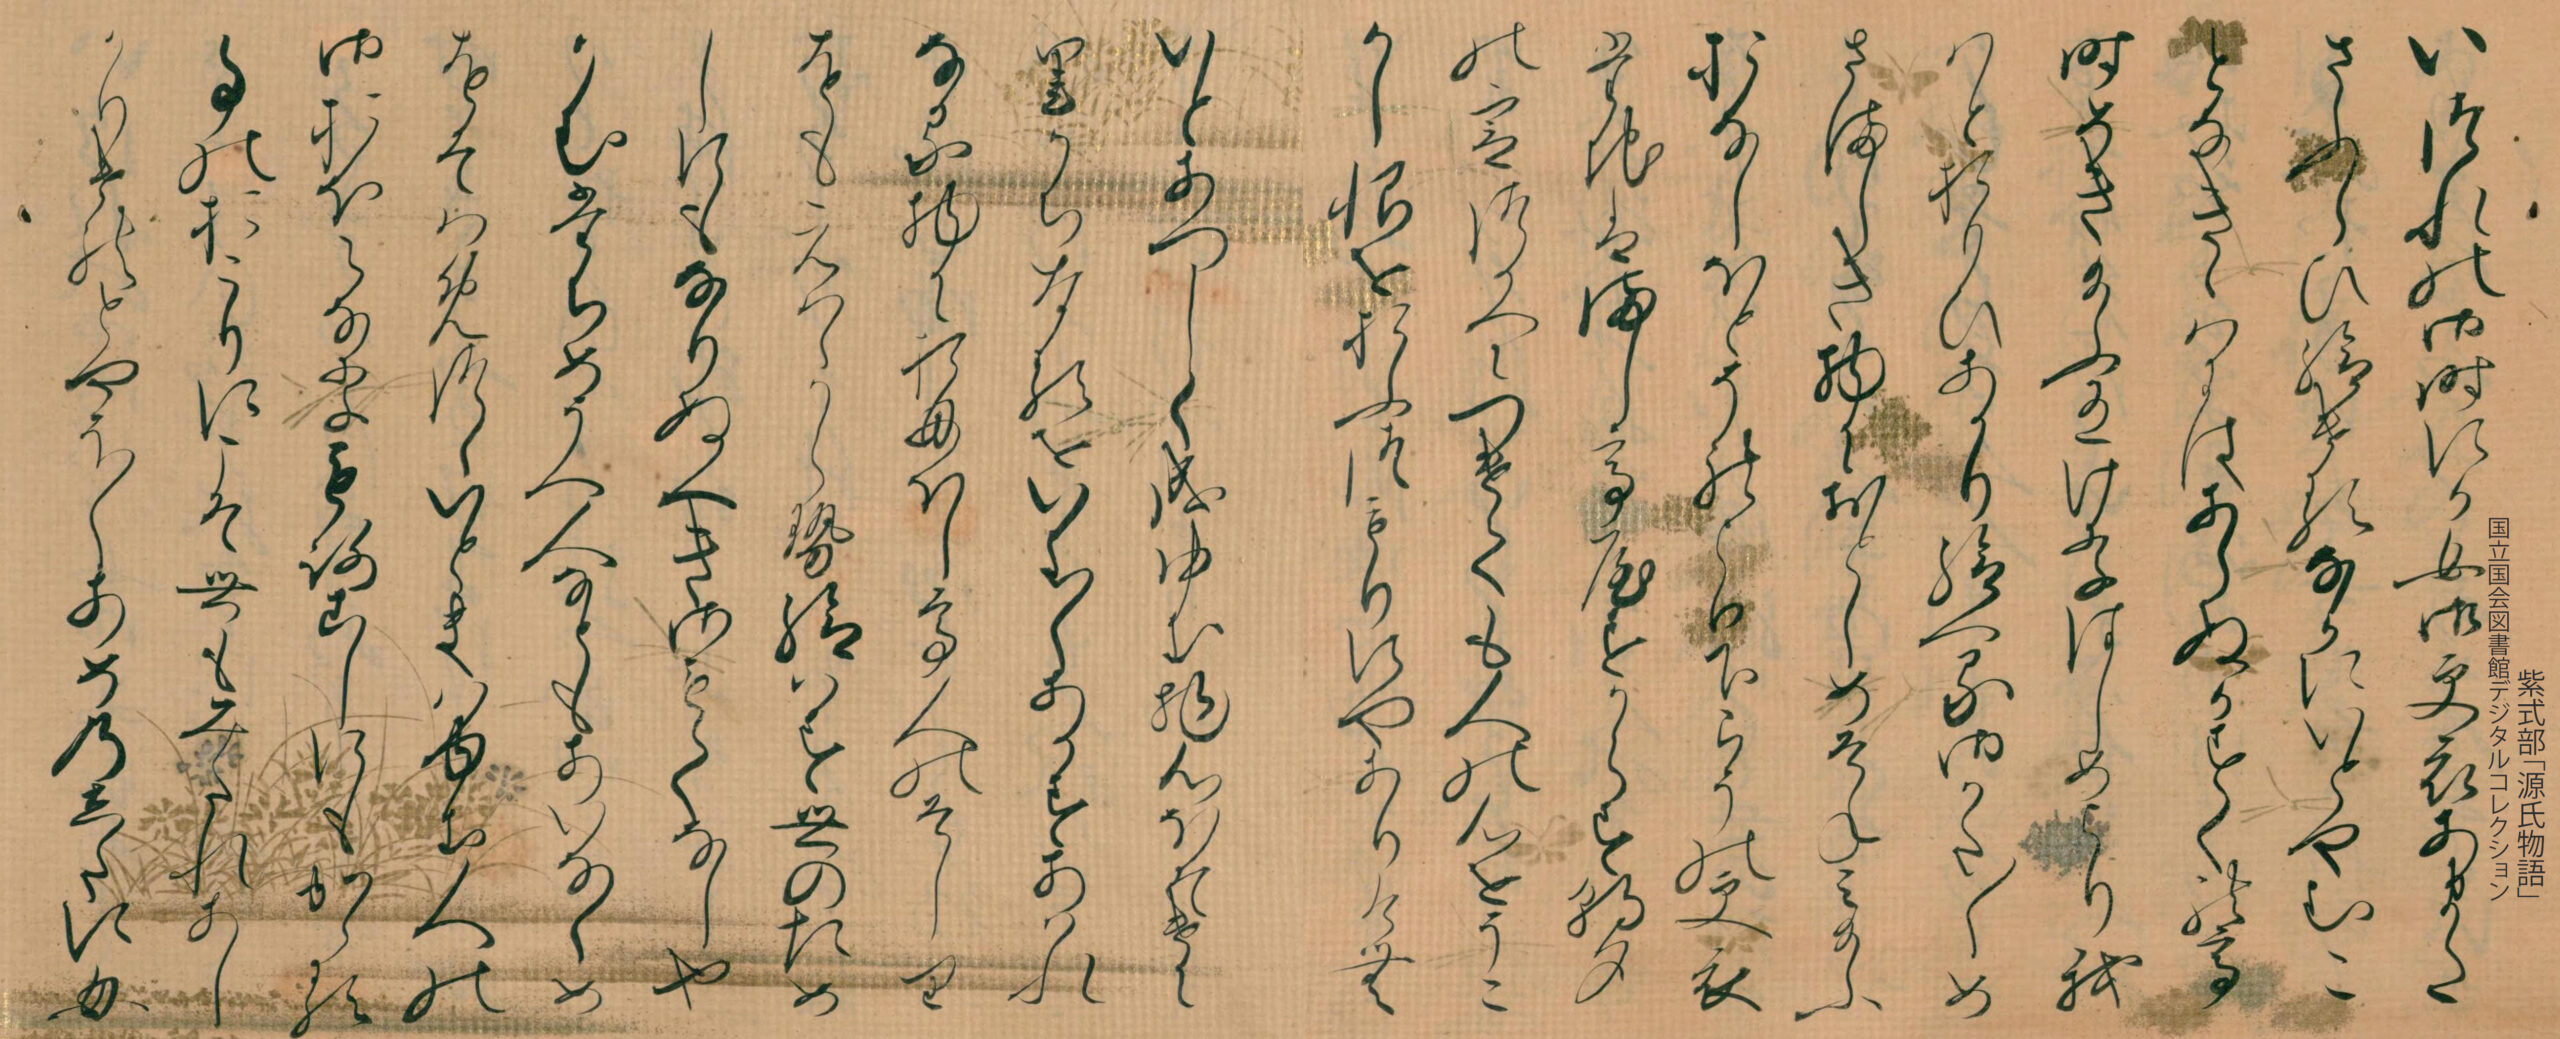 いつれの御時にか女御更衣あまた
さふらひ給ける中にいとやむこ
となきゝはにはあらぬかすくれて
時めきたまふ有けりはしめより我
はとおもひあかり給へる御かた〳〵め
さましき物におとしめそねみたまふ
おなしほとそれより下らうの更衣
たちはましてやすからす朝夕
の宮つかへにつけても人の心をうこ
かし恨をおふつもりにやありけむ
いとあつしく成ゆき物心ほそけに
里かちなるをいよ〳〵あかすあはれ
なる物に思ほして人のそしり
をもえはゝからせ給はす世のため
しにもなりぬへき御もてなしや
かむたちめうへ人なともあいなくめ
をそはめつゝいとまはゆき人の
御おほえなりもろこしにもかゝる
ことのおこりにこそ世もみたれあし
かりけれとやう〳〵あめのしたに
紫式部「源氏物語」
国立国会図書館デジタルコレクション